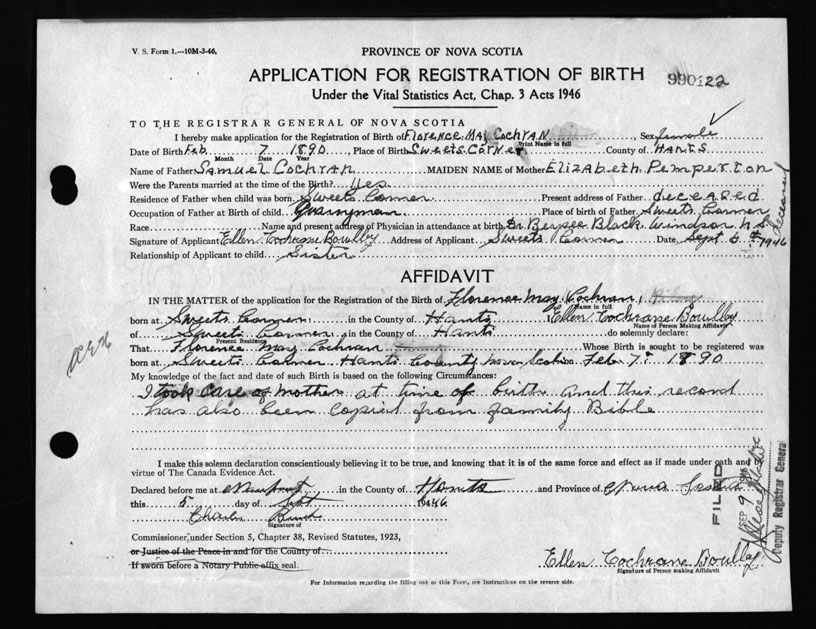 V. S. Form 1.—10M-3-46,
PROVINCE OF NOVA SCOTIA
APPLICATION FOR REGISTRATION OF BIRTH
990122
Under the Vital Statistics Act, Chap. 3 Acts 1946
TO THE REGISTRAR GENERAL OF NOVA SCOTIA
I hereby make application for the Registration of Birth of Florence May Cochran Sex female
Print Name in full
Date of Birth Feb 7 1890 Place of Birth Sweets Corner County of HANTS
Month Date Year
Name of Father Samuel Cochran MAIDEN NAME of Mother Elizabeth Pemperton
Were the Parents married at the time of the Birth? Yes
Residence of Father when child was born Sweets Corner Present address of Father deceased
Occupation of Father at Birth of child Quarryman Place of birth of Father Sweets Corner
Race Name and present address of Physician in attendance at birth Dr Black Windsor N.S. deceased
Signature of Applicant Ellen Cochrane Boullby Address of Applicant Sweets Corner Date Sept 5 1946
Relationship of Applicant to child Sister
AFFIDAVIT
IN THE MATTER of the application for the Registration of the Birth of Florence May Cochran
Name in full
born at Sweets Corner in the County of Hants I Ellen Cochrane Boullby
Name of Person Making Affidavit
of Sweets Corner in the County of Hants do solemnly declare:
Present Residence
That Florence May Cochran Whose Birth is sought to be registered was
born at Sweets Corner Hants County Nova Scotia on Feb 7 1890
My knowledge of the fact and date of such Birth is based on the following Circumstances:
I took care of mother at time of birth and this record
has also been copied from family Bible
I make this solemn declaration conscientiously believing it to be true, and knowing that it is of the same force and effect as if made under oath and by
virtue of The Canada Evidence Act.
Declared before me at Newport in the County of Hants and Province of Nova Scotia
this 5 day of Sept 1946
Charles
Signature of
Commissioner, under Section 5, Chapter 38, Revised Statutes, 1923,
or Justice of the Peace in and for the County of
If sworn before a Notary Public affix seal.
Ellen Cochrane Boullby
Signature of Person making Affidavit
For Information regarding the filling out of this Form, see Instructions on the reverse side.
FILED
SEP 9 1946
Deputy Registrar General